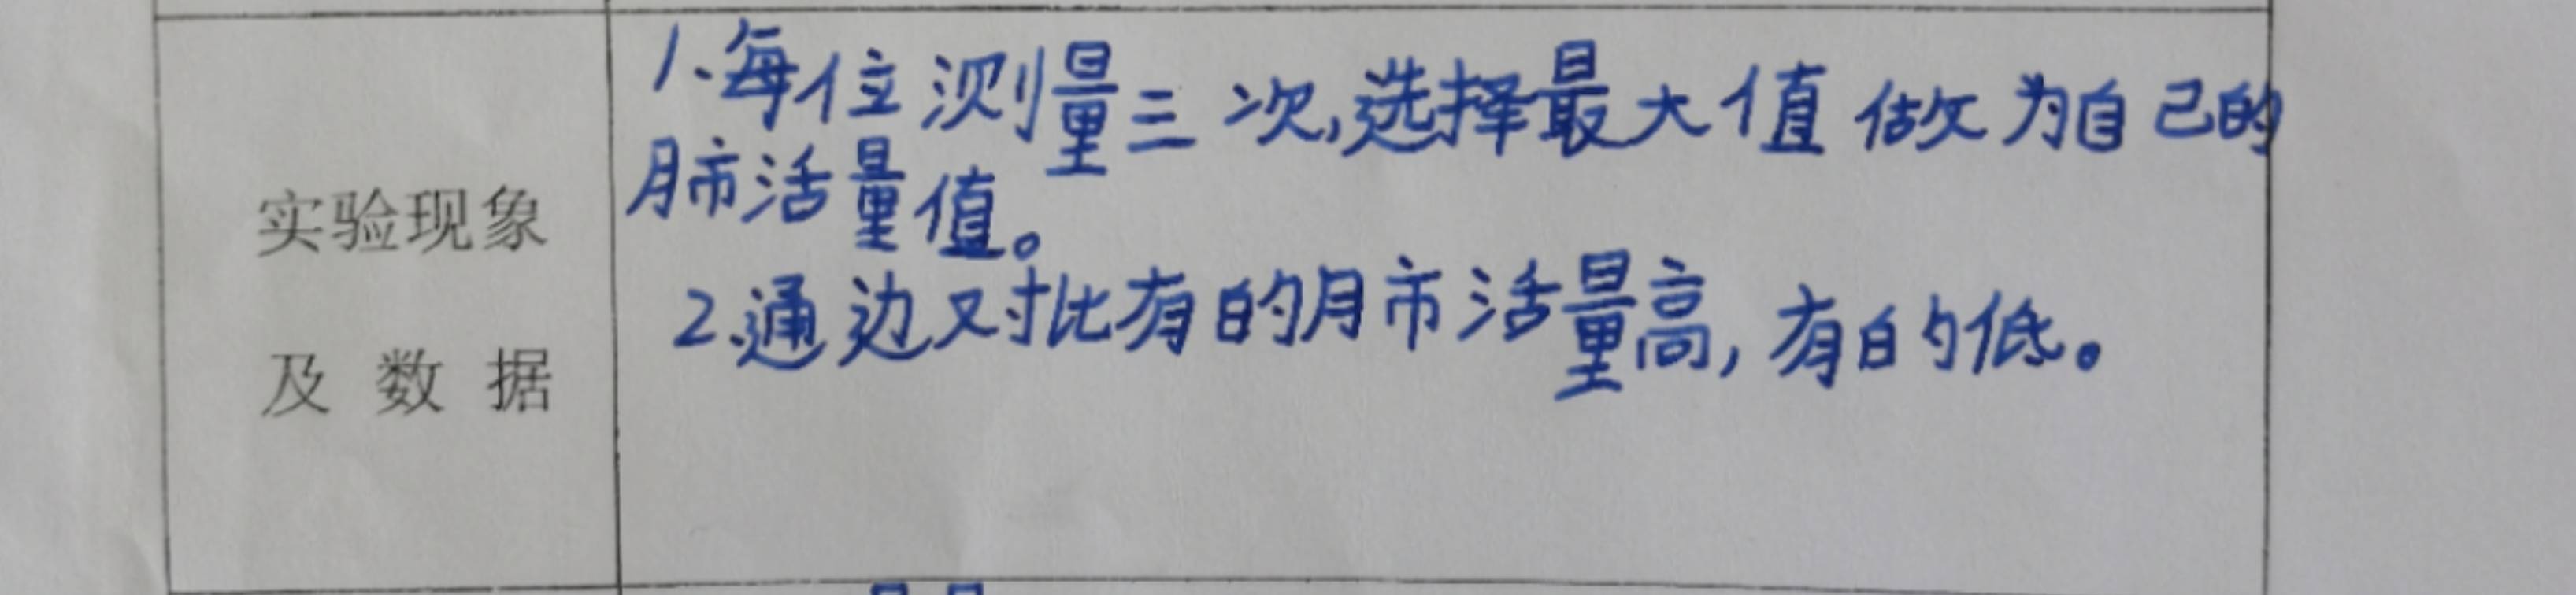 实验现象
及数据
1.每位测量三次,选择最大值做为自己的
肺活量值。
2.通边对比有的肺活量高,有的低。